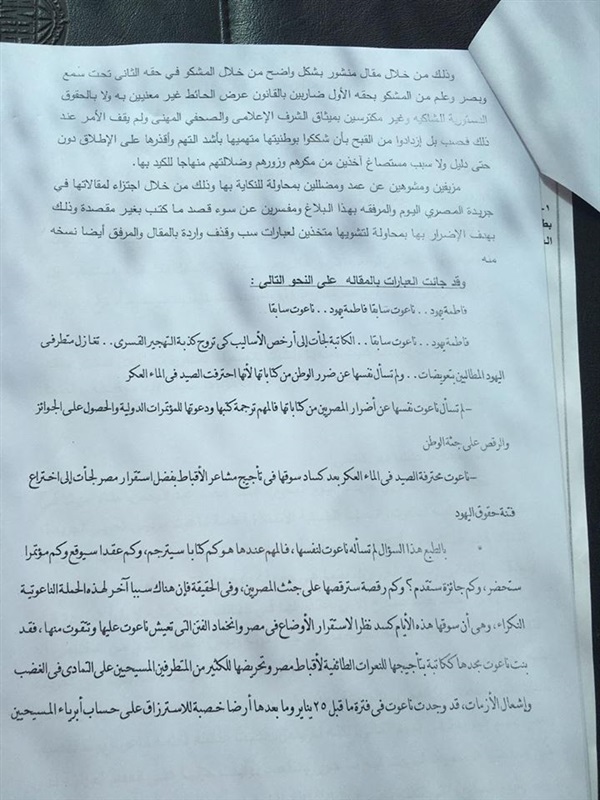 وذلك من خلال مقال منشور بشكل واضح من خلال المشكو في حقه الثاني تحت سمع
وبصر وعلم من المشكو بحقه الأول ضاربين بالقانون عرض الحائط غير معنيين به ولا بالحقوق
الدستورية للشاكيه وغير مكترسين بميثاق الشرف الإعلامى والصحفي المهنى ولم يقف الأمر عند
ذلك فحسب بل إزدادوا من القبح بأن شككوا بوطنيتها متهميها بأشد التهم وأقذرها على الإطلاق دون
حتى دليل ولا سبب مستصاغ أخذين من مكرهم وزورهم وضلالتهم منهاجا للكيد بها.
مزيفين ومشوهين عن عمد ومضللين بمحاولة للنكاية بها وذلك من خلال اجتزاء لمقالاتها في
جريدة المصري اليوم والمرفقه بهذا البلاغ ومفسرين عن سوء قصد ما كتب بغير مقصدة وذلك
بهدف الإضرار بها بمحاولة لتشويها متخذين لعبارات سب وقذف واردة بالمقال والمرفق أيضا نسخه
منه
وقد جائت العبارات بالمقاله على النحو التالى :
فاطمة يهود . . ناعوت سابقا فاطمة يهود . . ناعوت سابقا
فاطمة يهود . . ناعوت سابقا . . الكاتبة لجأت إلى أرخص الأساليب كى تروج كذبة التهجير القسرى . . تغازل متطرفى
اليهود المطالبين بتعويضات . . ولم تسأل نفسها عن ضرر الوطن من كتاباتها لأنها احترفت الصيد فى الماء العكر
–لم تسأل ناعوت نفسها عن أضرار المصريين من كتاباتها فالمهم ترجمة كتبها ودعوتها للمؤتمرات الدولية والحصول على الجوائز
والرقص على جثة الوطن
–ناعوت محترفة الصيد فى الماء العكر بعد كساد سوقها فى تأجيج مشاعر الأقباط بفضل استقرار مصر لجأت إلى اختراع
فتنة حقوق اليهود
* بالطبع هذا السؤال لم تسأله ناعوت لنفسها ، فالمهم عندها هو كم كتابا سيترجم ، وكم عقدا سيوقع وكم مؤتمرا
ستحضر ، وكم جائزة ستقدم ؟ وكم رقصة سترقصها على جثث المصريين ، وفى الحقيقة فإن هناك سببا آخر لهذه الحملة الناعوتية
النكراء ، وهى أن سوقها هذه الأيام كسد نظرا لاستقرار الأوضاع فى مصر وانخماد الفتن التى تعيش ناعوت عليها وتتقوت منها ، فقد
بنت ناعوت مجدها ككاتبة بتأجيجها للنعرات الطائفية لأقباط مصر وتحريضها للكثير من المتطرفين المسيحيين على التمادى فى الغضب
وإشعال الأزمات ، قد وجدت ناعوت فى فترة ما قبل ٢٥ يناير وما بعدها أرضا خصبة للاسترزاق على حساب أبرياء المسيحيين